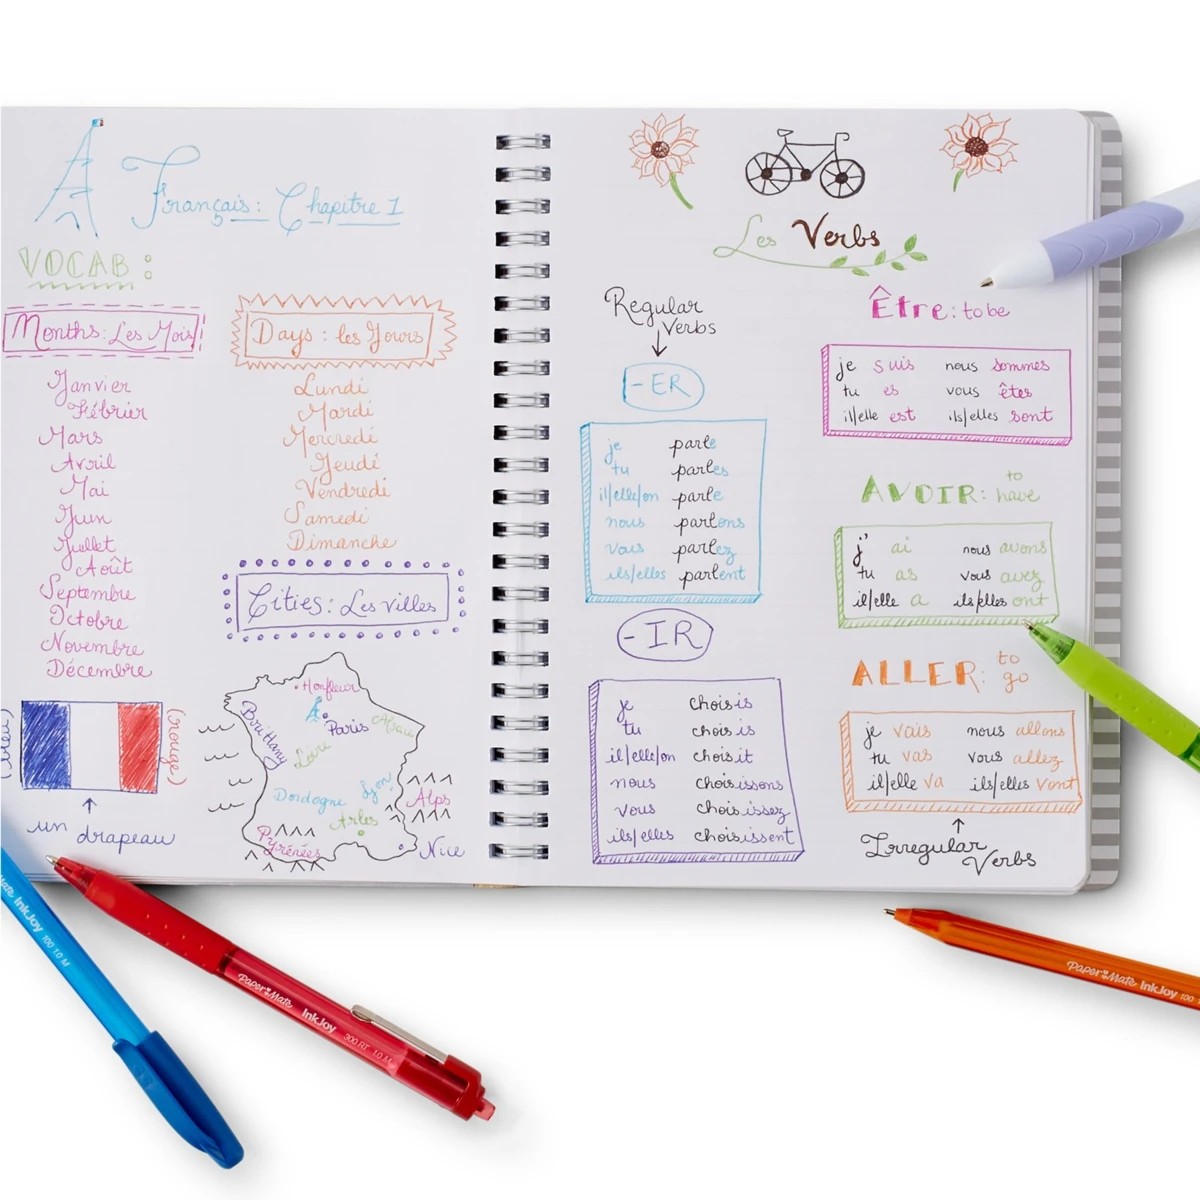 Français: Chapitre 1
VOCAB:
Months: Les Mois
Janvier
Février
Mars
Avril
Mai
Juin
Juillet
Août
Septembre
Octobre
Novembre
Décembre
Days: les Jours
Lundi
Mardi
Mercredi
Jeudi
Vendredi
Samedi
Dimanche
Cities: Les villes
(bleu)
(rouge)
un drapeau
Honfleur
Paris
Brittany
Loire
Dordogne
Lyon
Alps
Arles
Pyrénées
Nice
Les Verbs
Regular
Verbs
-ER
je parle
tu parles
il/elle/on parle
nous parlons
vous parlez
ils/elles parlent
-IR
je choisis
tu choisis
il/elle/on choisit
nous choisissons
vous choisissez
ils/elles choisissent
Être: to be
je suis nous sommes
tu es vous êtes
il/elle est ils/elles sont
AVOIR: to have
j' ai nous avons
tu as vous avez
il/elle a ils/elles ont
ALLER: to go
je vais nous allons
tu vas vous allez
il/elle va ils/elles vont
Irregular
Verbs
Mate InkJoy 100 1.0 M
Paper Mate InkJoy 300 RT 1.0 M
Paper Mate InkJoy 100